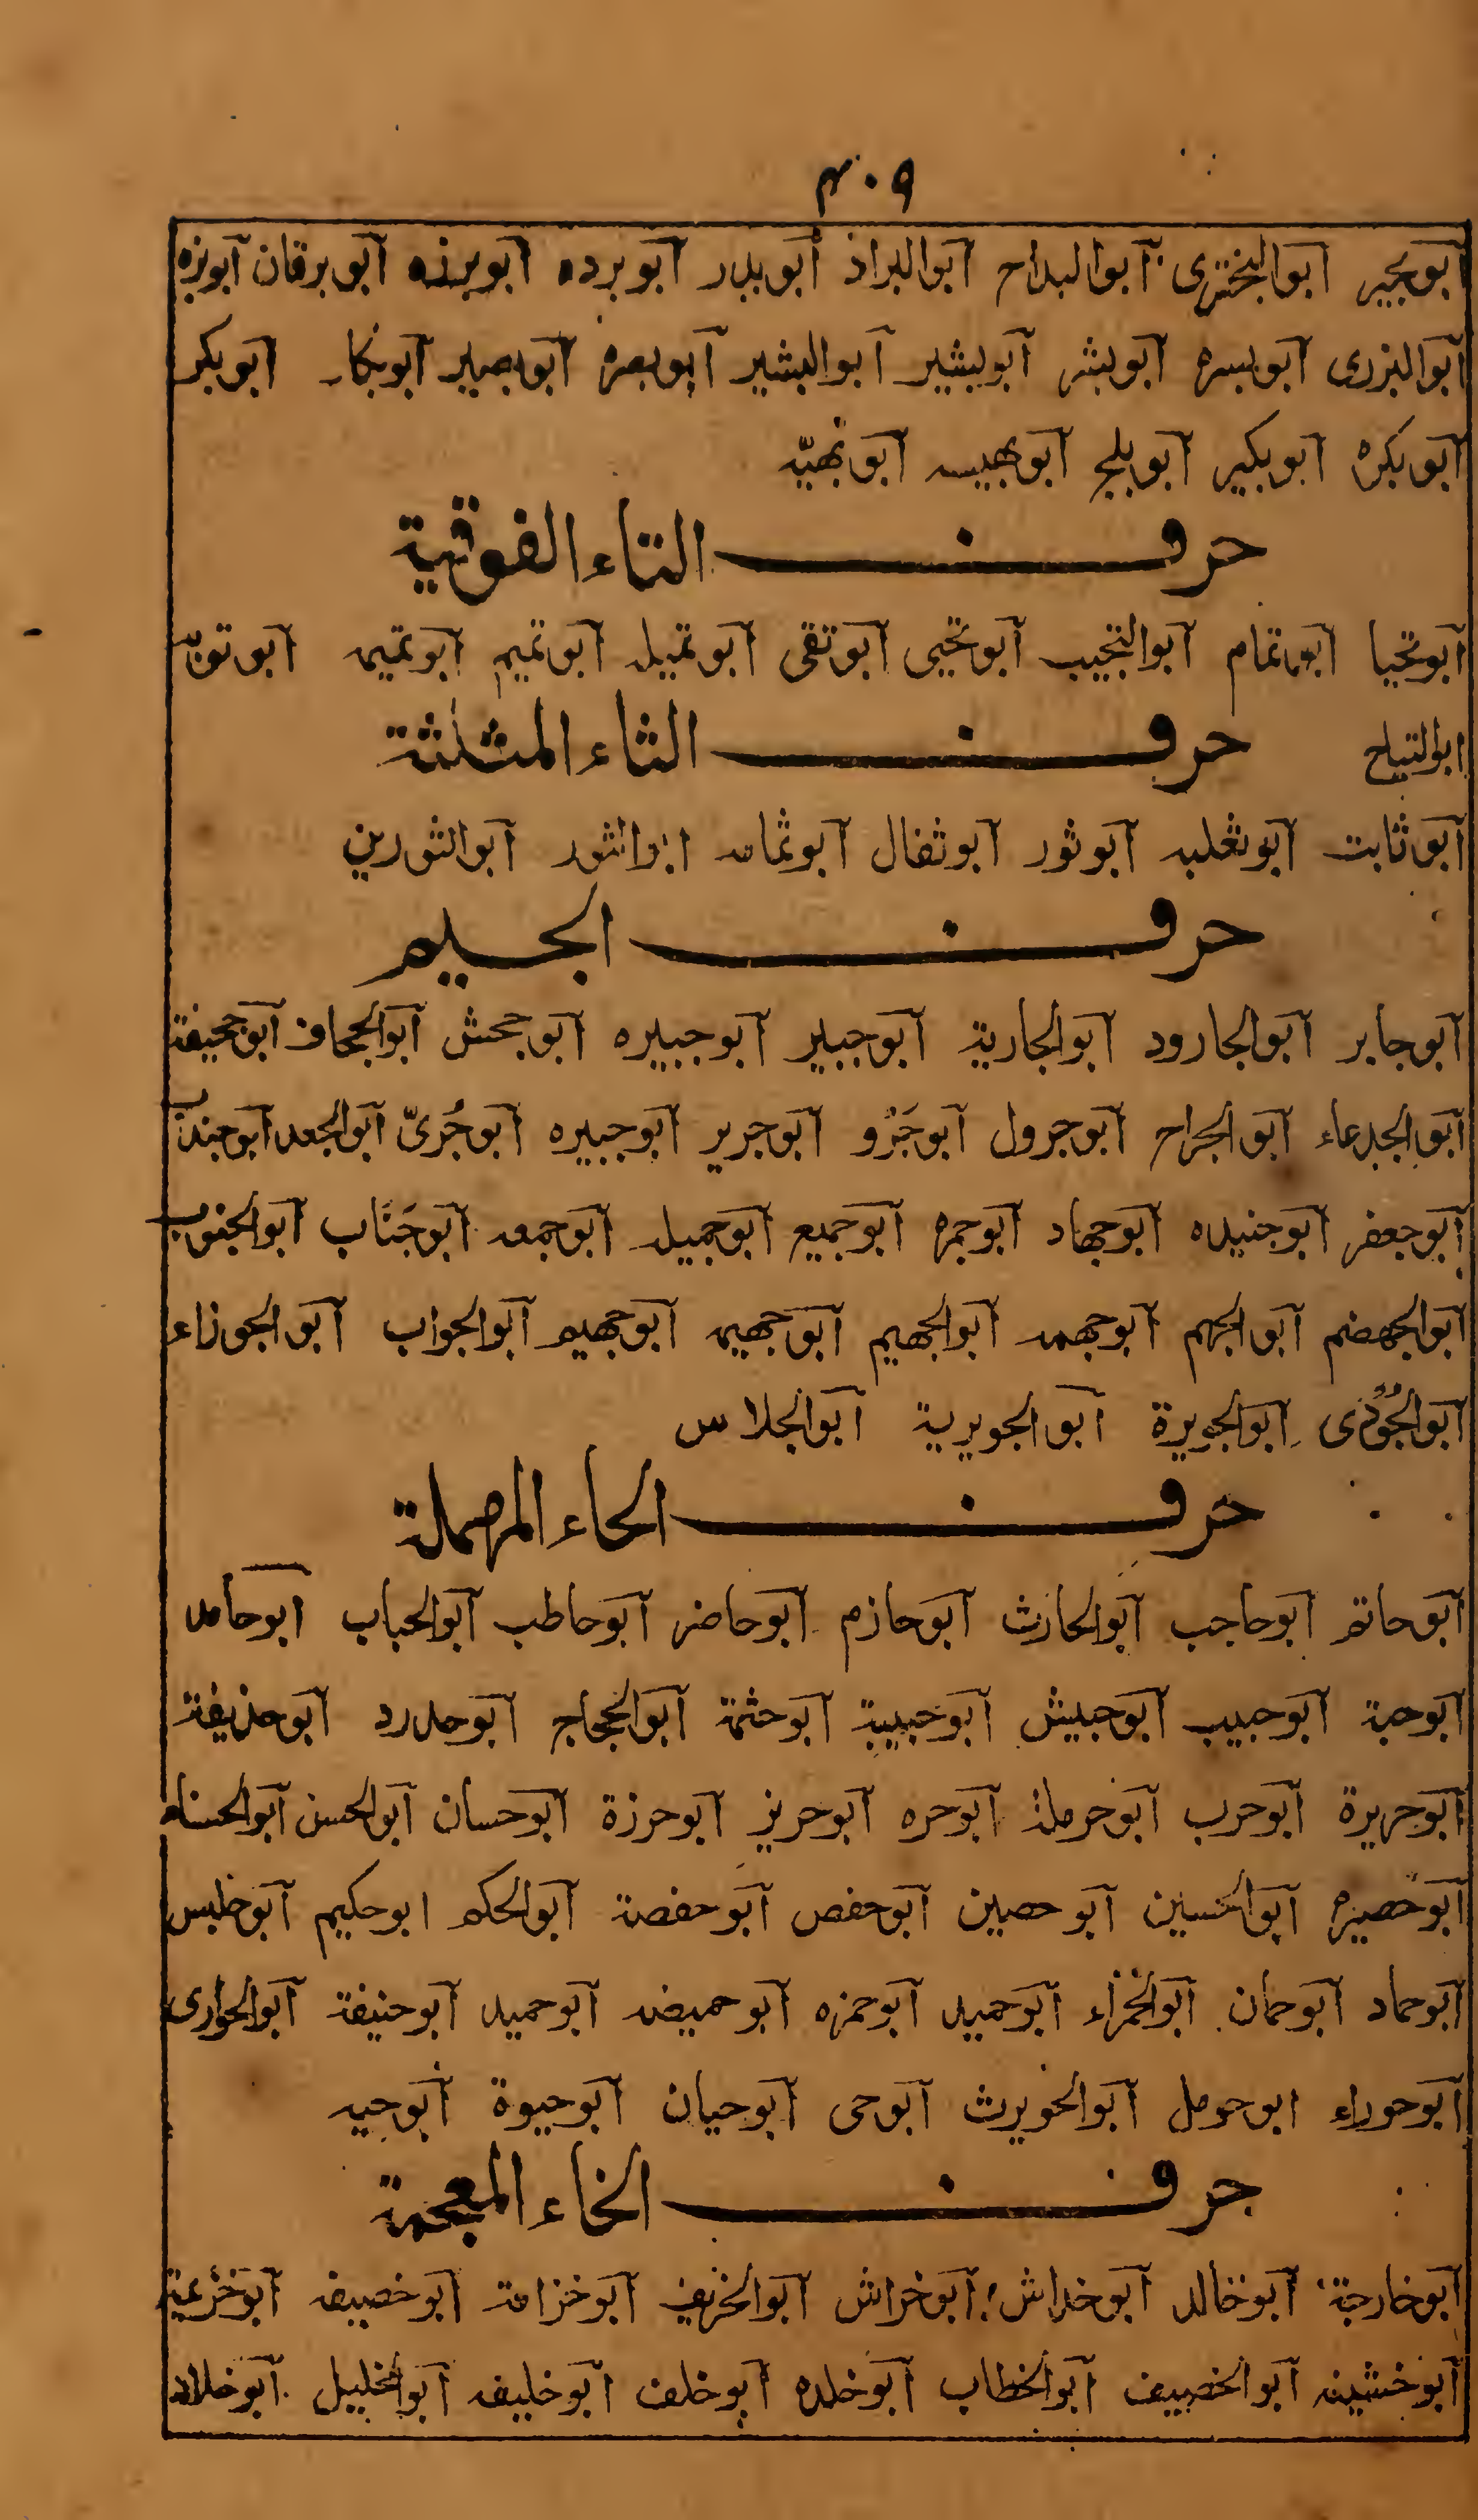 ٤٠٩
ابو بجير ابو البختری ابو البداح ابو البراذ ابو بدر ابو برده ابو برزه ابو برقان ابو بزه
ابو البزری ابو بسره ابو بشر ابو بشير ابو البشير ابو بصره ابو بصير ابو بكار ابو بكر
ابو بكره ابو بكير ابو بلج ابو بهيسه ابو بهيّه
حرف التاء الفوقية
ابو تحيا ابو تمام ابو التجيب ابو تحيى ابو تقى ابو تميله ابو تميم ابو تميمه ابو توبه
ابو التياح حرف الثاء المثلثة
ابو ثابت ابو ثعلبه ابو ثور ابو ثفال ابو ثمامه ابو الثور ابو الثورين
حرف الجيم
ابو جابر ابو الجارود ابو الجارية ابو جبير ابو جبيره ابو جحش ابو الجحاف ابو جحيفة
ابو الجدعاء ابو الجراح ابو جرول ابو جَرْو ابو جرير ابو جبيره ابو جُرىّ ابو الجعد ابو جندب
ابو جعفر ابو جنيده ابو جهاد ابو جمره ابو جميع ابو جميله ابو جمعه ابو جَنَاب ابو الجنوب
ابو الجهضم ابو الجهم ابو جهمه ابو الجهيم ابو جهيمه ابو جهيم ابو الجواب ابو الجوزاء
ابو الجُوْدى ابو الجويرة ابو الجويرية ابو الجلاس
حرف الحاء المهملة
ابو حاتم ابو حاجب ابو الحارث ابو حازم ابو حاضر ابو حاطب ابو الحباب ابو حامد
ابو حبة ابو حبيب ابو حبيش ابو حبيبة ابو حثمة ابو الحجاج ابو حدرد ابو حذيفة
ابو حريرة ابو حرب ابو حرملة ابو حره ابو حريز ابو حرزة ابو حسان ابو الحسن ابو الحسناء
ابو حصيره ابو الحسين ابو حصين ابو حفص ابو حفصة ابو الحكم ابو حكيم ابو حلبس
ابو حماد ابو حمان ابو الحمراء ابو حميد ابو حمزه ابو حميضه ابو حميد ابو حنيفة ابو الحوارى
ابو حوراء ابو حومل ابو الحويرث ابو حى ابو حيان ابو حيوة ابو حيه
حرف الخاء المعجمة
ابو خارجة ابو خالد ابو خداش ابو خراش ابو الخريف ابو خزامة ابو خصيفه ابو خزيمة
ابو خشينه ابو الخصيف ابو الخطاب ابو خلده ابو خلف ابو خليفه ابو الخليل ابو خلاد